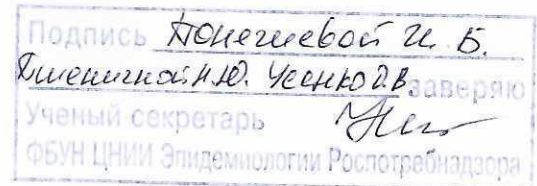 Подпись Понежевой Ж. Б.
Пшеничной Н.Ю. Усенко Д.В. заверяю
Ученый секретарь
ФБУН ЦНИИ Эпидемиологии Роспотребнадзора